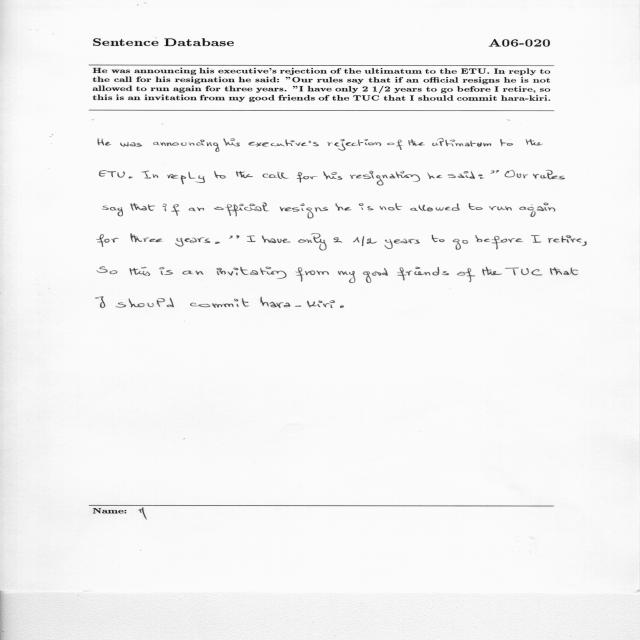 Sentence Database A06-020
He was announcing his executive's rejection of the ultimatum to the ETU. In reply to
the call for his resignation he said: "Our rules say that if an official resigns he is not
allowed to run again for three years. "I have only 2 1/2 years to go before I retire, so
this is an invitation from my good friends of the TUC that I should commit hara-kiri.
He was announcing his executive's rejection of the ultimatum to the
ETU. In reply to the call for his resignation he said: "Our rules
say that if an official resigns he is not allowed to run again
for three years. " I have only 2 1/2 years to go before I retire,
So this is an invitation from my good friends of the TUC that
I should commit hara-kiri.
Name: